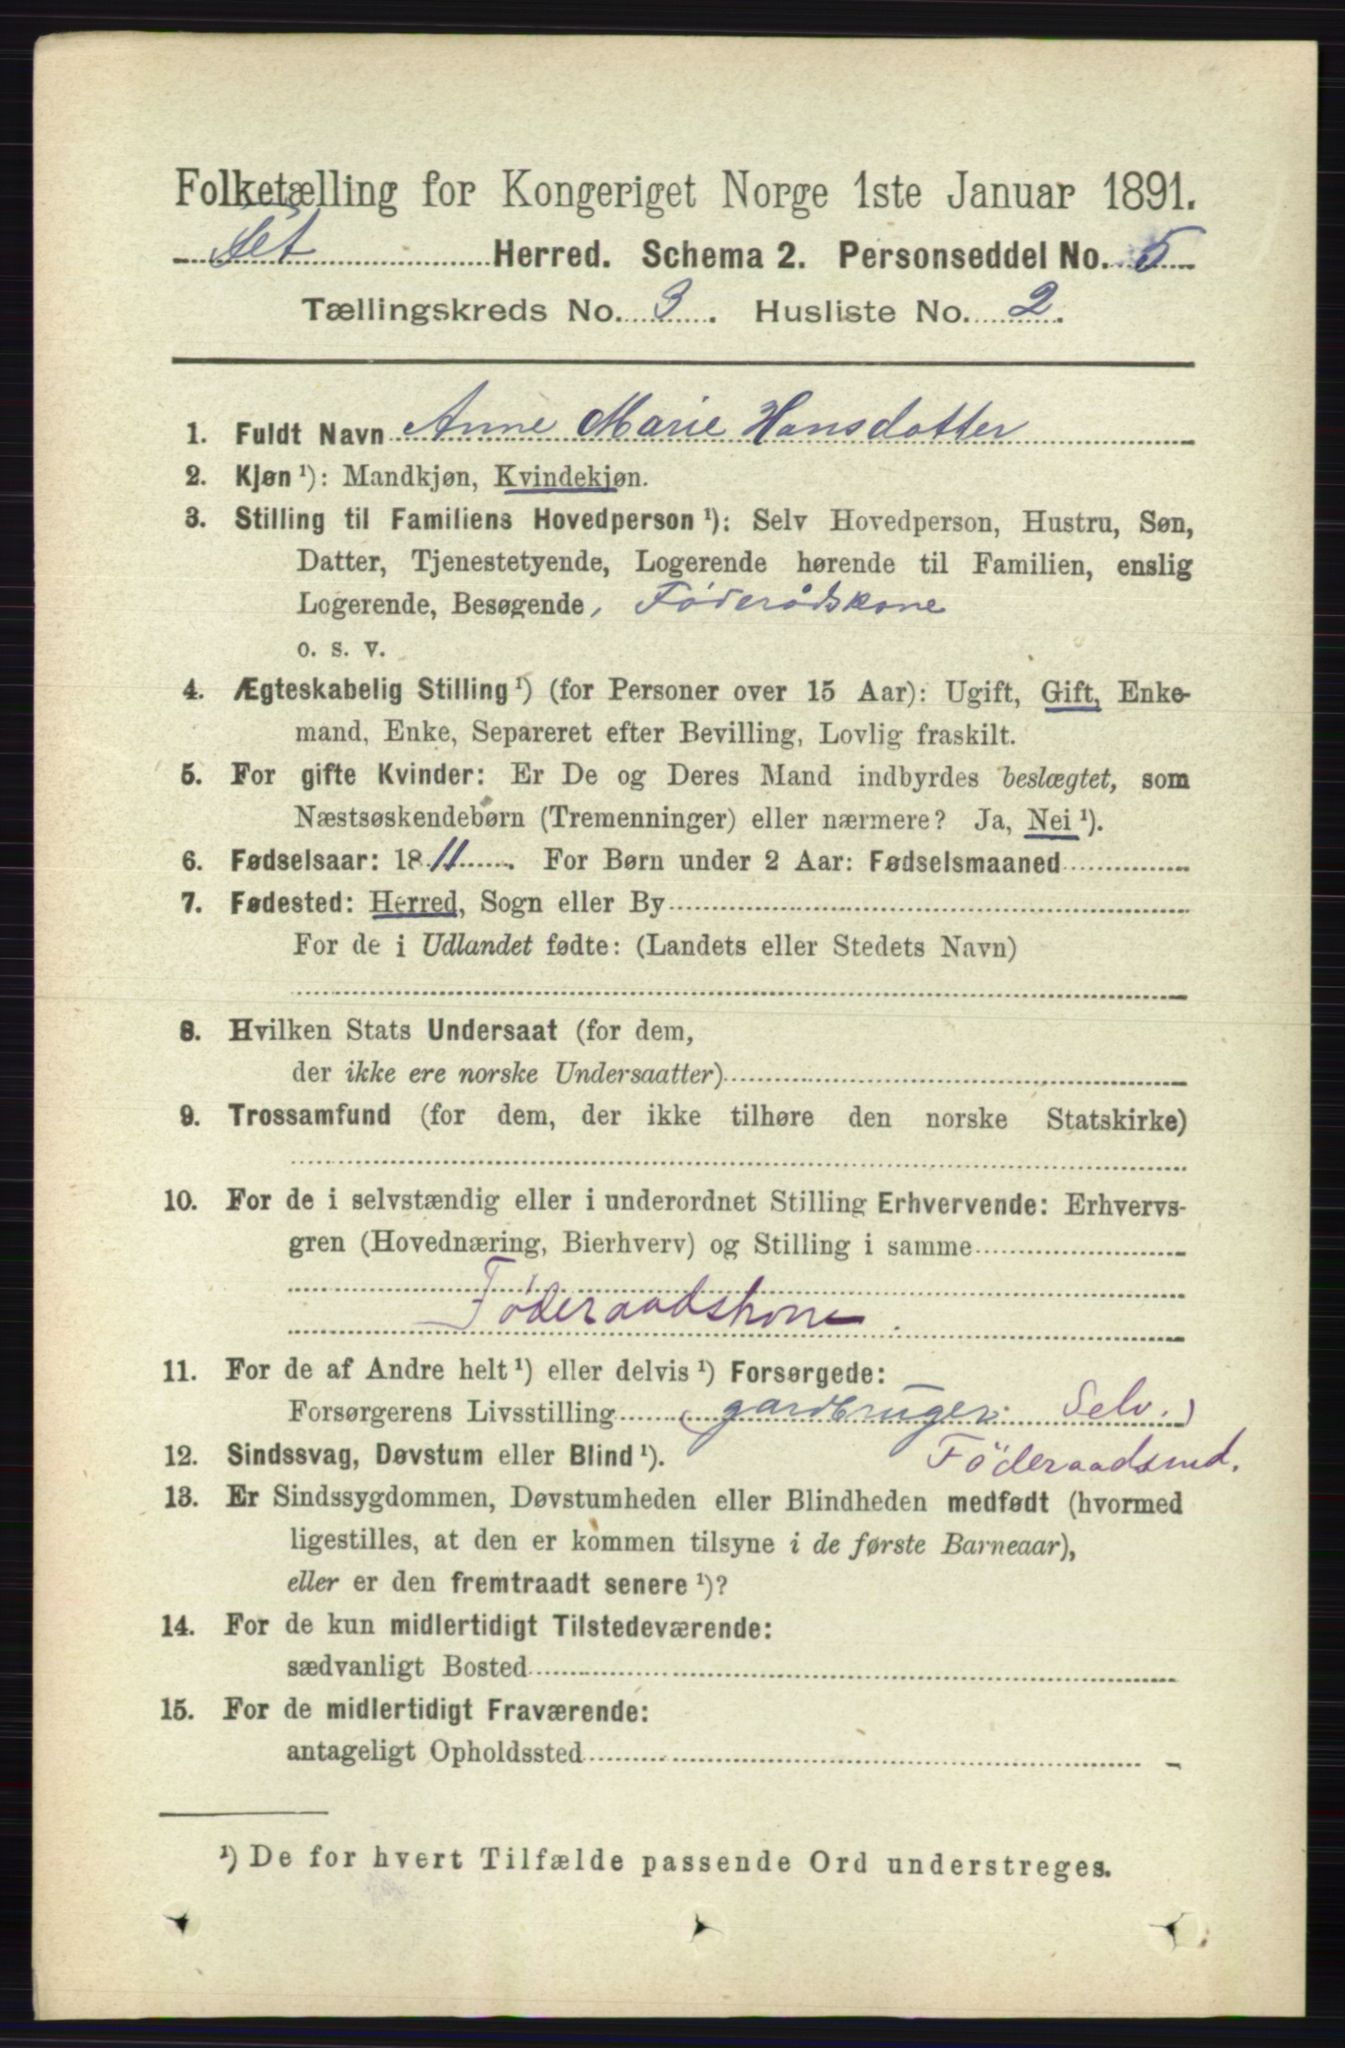 Folketælling for Kongeriget Norge 1ste Januar 1891.
Herred. Schema 2. Personseddel No. 5
Tællingskreds No. 3. Husliste No. 2.
1. Fuldt Navn Anne Marie Hansdatter
2. Kjøn ¹): Mandkjøn, Kvindekjøn.
3. Stilling til Familiens Hovedperson ¹): Selv Hovedperson, Hustru, Søn,
Datter, Tjenestetyende, Logerende hørende til Familien, enslig
Logerende, Besøgende, Føderådskone
o. s. v.
4. Ægteskabelig Stilling ¹) (for Personer over 15 Aar): Ugift, Gift, Enke-
mand, Enke, Separeret efter Bevilling, Lovlig fraskilt.
5. For gifte Kvinder: Er De og Deres Mand indbyrdes beslægtet, som
Næstsøskendebørn (Tremenninger) eller nærmere? Ja, Nei ¹).
6. Fødselsaar: 1811. For Børn under 2 Aar: Fødselsmaaned
7. Fødested: Herred, Sogn eller By
For de i Udlandet fødte: (Landets eller Stedets Navn)
8. Hvilken Stats Undersaat (for dem,
der ikke ere norske Undersaatter)
9. Trossamfund (for dem, der ikke tilhøre den norske Statskirke)
10. For de i selvstændig eller i underordnet Stilling Erhvervende: Erhvervs-
gren (Hovednæring, Bierhverv) og Stilling i samme
Føderaadskone.
11. For de af Andre helt ¹) eller delvis ¹) Forsørgede:
Forsørgerens Livsstilling (gardbruger. Selv.)
12. Sindssvag, Døvstum eller Blind ¹). Föderaadsmd.
13. Er Sindssygdommen, Døvstumheden eller Blindheden medfødt (hvormed
ligestilles, at den er kommen tilsyne i de første Barneaar),
eller er den fremtraadt senere ¹)?
14. For de kun midlertidigt Tilstedeværende:
sædvanligt Bosted
15. For de midlertidigt Fraværende:
antageligt Opholdssted
¹) De for hvert Tilfælde passende Ord understreges.